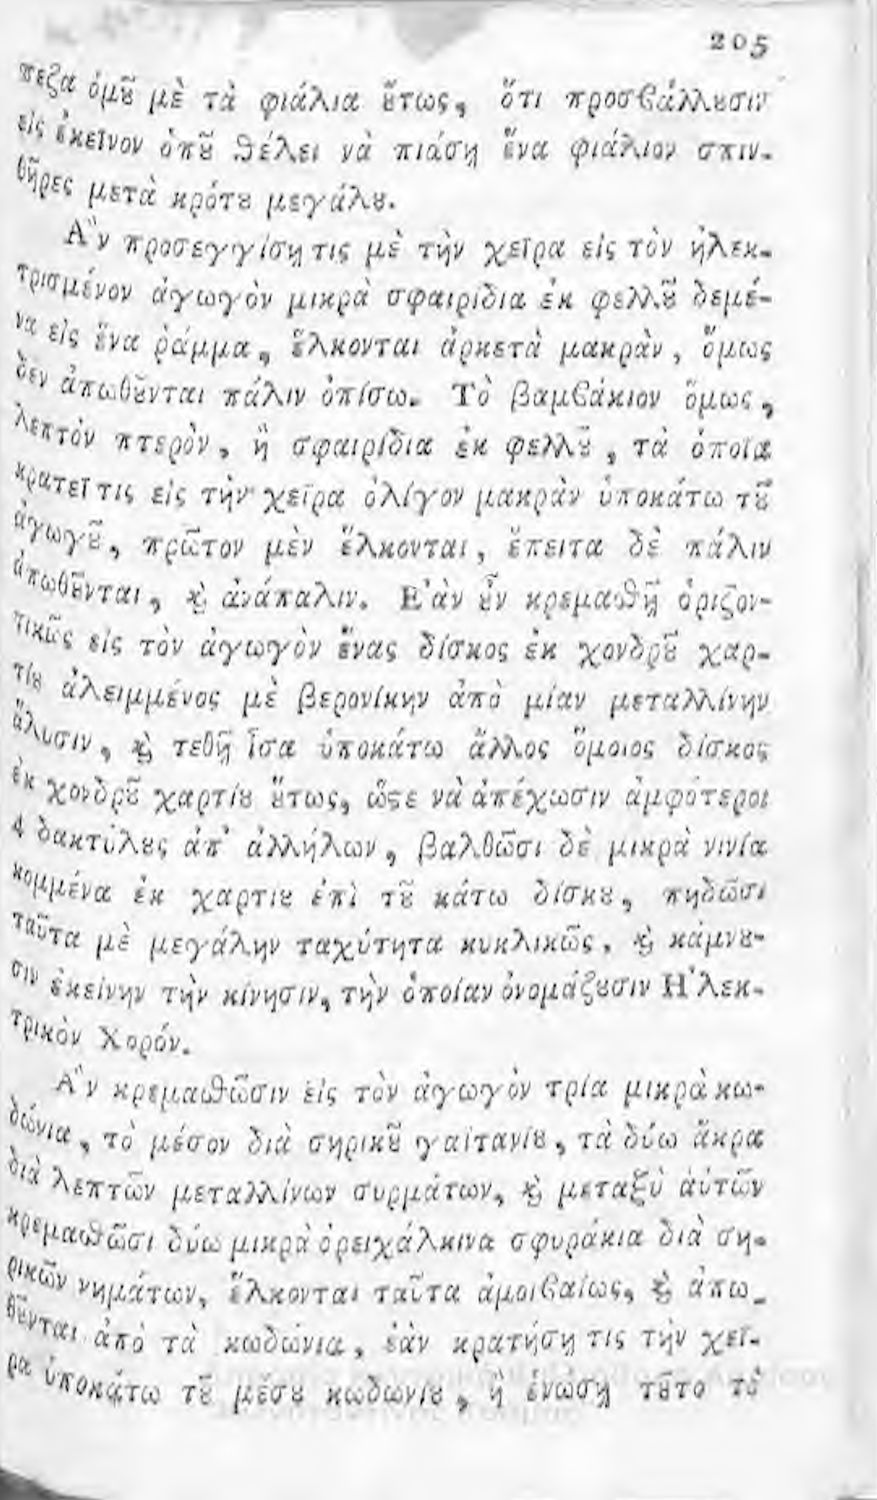 205
πεζα ὁμȣ͂ μὲ τὰ φιάλια ȣ̔́τως, ὅτι προσϐάλλȣσιν
εἰς ἐκεῖνον ὁπȣ͂ θέλει νὰ πιάσῃ ἕνα φιάλιον σπιν-
θῆρες μετὰ κρότȣ μεγάλȣ.
Ἂν προσεγγίσῃ τις μὲ τὴν χεῖρα εἰς τὸν ἠλεκ-
τρισμένον ἀγωγὸν μικρὰ σφαιρίδια ἐκ φελλȣ͂ δεμέ-
να εἰς ἕνα ῥάμμα, ἕλκονται ἀρκετὰ μακρὰν, ὅμως
δὲν ἀπωθȣ͂νται πάλιν ὀπίσω. Τὸ βαμϐάκιον ὅμως,
λεπτὸν πτερὸν, ἢ σφαιρίδια ἐκ φελλȣ͂, τὰ ὁποῖα
κρατεῖ τις εἰς τὴν χεῖρα ὀλίγον μακρὰν ὑποκάτω τȣ͂
ἀγωγȣ͂, πρῶτον μὲν ἕλκονται, ἔπειτα δὲ πάλιν
ἀπωθȣ͂νται, ϗ̀ ἀνάπαλιν. Ἐὰν ȣ̓͂ν κρεμαθῇ ὁριζον-
τικῶς εἰς τὸν ἀγωγὸν ἕνας δίσκος ἐκ χονδρȣ͂ χαρ-
τίȣ ἀλειμμένος μὲ βερονίκην ἀπὸ μίαν μεταλλίνην
ἅλυσιν, ϗ̀ τεθῇ ἴσα ὑποκάτω ἄλλος ὅμοιος δίσκος
ἐκ χονδρȣ͂ χαρτίȣ ȣ̔́τως, ὥϛε νὰ ἀπέχωσιν ἀμφότεροι
4 δακτύλȣς ἀπ' ἀλλήλων, βαλθῶσι δὲ μικρὰ νινία
κομμένα ἐκ χαρτίȣ ἐπὶ τȣ͂ κάτω δίσκȣ, πηδῶσι
ταῦτα μὲ μεγάλην ταχύτητα κυκλικῶς, ϗ̀ κάμνȣ-
σιν ἐκείνην τὴν κίνησιν, τὴν ὁποίαν ὀνομάζȣσιν Ἠλεκ-
τρικὸν Χορόν.
Ἂν κρεμαθῶσιν εἰς τὸν ἀγωγὸν τρία μικρὰ κω-
δώνια, τὸ μέσον διὰ σηρικȣ͂ γαϊτανίȣ, τὰ δύω ἄκρα
διὰ λεπτῶν μεταλλίνων συρμάτων, ϗ̀ μεταξὺ αὐτῶν
κρεμαθῶσι δύω μικρὰ ὀρειχάλκινα σφυράκια διὰ ση-
ρικῶν νημάτων, ἕλκονται ταῦτα ἀμοιϐαίως, ϗ̀ ἀπω-
θȣ͂νται ἀπὸ τὰ κωδώνια, ἐὰν κρατήσῃ τις τὴν χεῖ-
ρα ὑποκάτω τȣ͂ μέσȣ κωδωνίȣ, ἢ ἑνώσῃ τȣ͂το τὸ